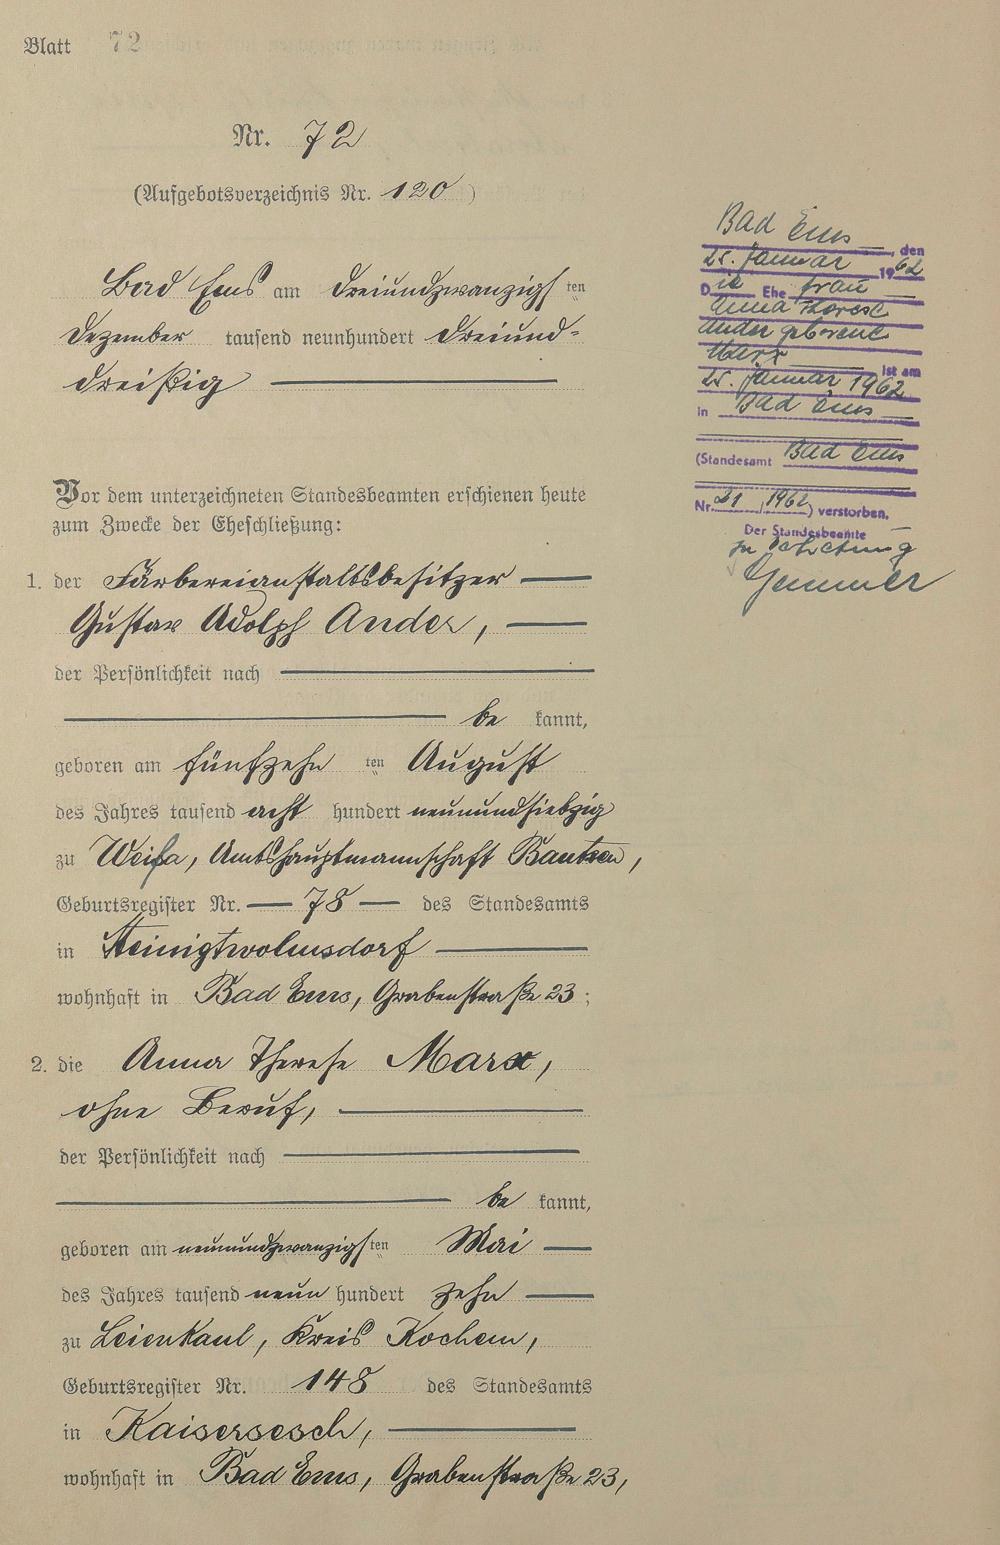 Blatt 72
Nr. 72
(Aufgebotsverzeichnis Nr. 120)
Bad Ems am dreiundzwanzigsten
Dezember tausend neunhundert dreiund-
dreißig
Vor dem unterzeichneten Standesbeamten erschienen heute
zum Zwecke der Eheschließung:
1. der Färbereianstaltsbesitzer
Gustav Adolph Ander,
der Persönlichkeit nach
be kannt,
geboren am fünfzehn ten August
des Jahres tausend acht hundert neunundsiebzig
zu Weifa, Amtshauptmannschaft Bautzen,
Geburtsregister Nr. 78 des Standesamts
in Steinigtwolmsdorf
wohnhaft in Bad Ems, Grabenstraße 23;
2. die Anna Therese Marx,
ohne Beruf,
der Persönlichkeit nach
be kannt,
geboren am neunundzwanzigsten Mai
des Jahres tausend neun hundert zehn
zu Leienkaul, Kreis Kochem,
Geburtsregister Nr. 148 des Standesamts
in Kaisersesch,
wohnhaft in Bad Ems, Grabenstraße 23,
Bad Ems, den
25. Januar 1962
Die Ehefrau
Anna Therese
Ander geborene
Marx ist am
25. Januar 1962
in Bad Ems
(Standesamt Bad Ems
Nr. 21/1962) verstorben.
Der Standesbeamte